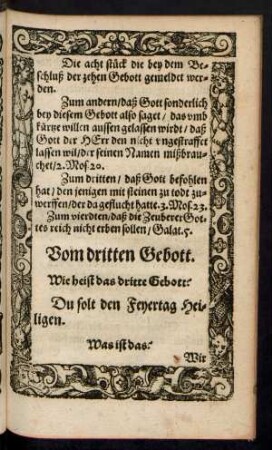 Die acht stück die bey dem Be-
schluß der zehen Gebott gemeldet wer-
den.
Zum andern/daß Gott sonderlich
bey diesem Gebott also saget/das vmb
kürtze willen aussen gelassen wirdt/daß
Gott der HErr den nicht vngestraffet
lassen wil/der seinen Namen mißbrau-
chet/2. Mos. 20.
Zum dritten/daß Gott befohlen
hat/den jenigen mit steinen zu todt zu-
werffen/der da geflucht hatte. 3. Mos. 23.
Zum vierdten/daß die Zeuberer Got-
tes reich nicht erben sollen/Galat. 5.
Vom dritten Gebott.
Wie heist das dritte Gebott?
Du solt den Feyertag Hei-
ligen.
Was ist das?
Wir